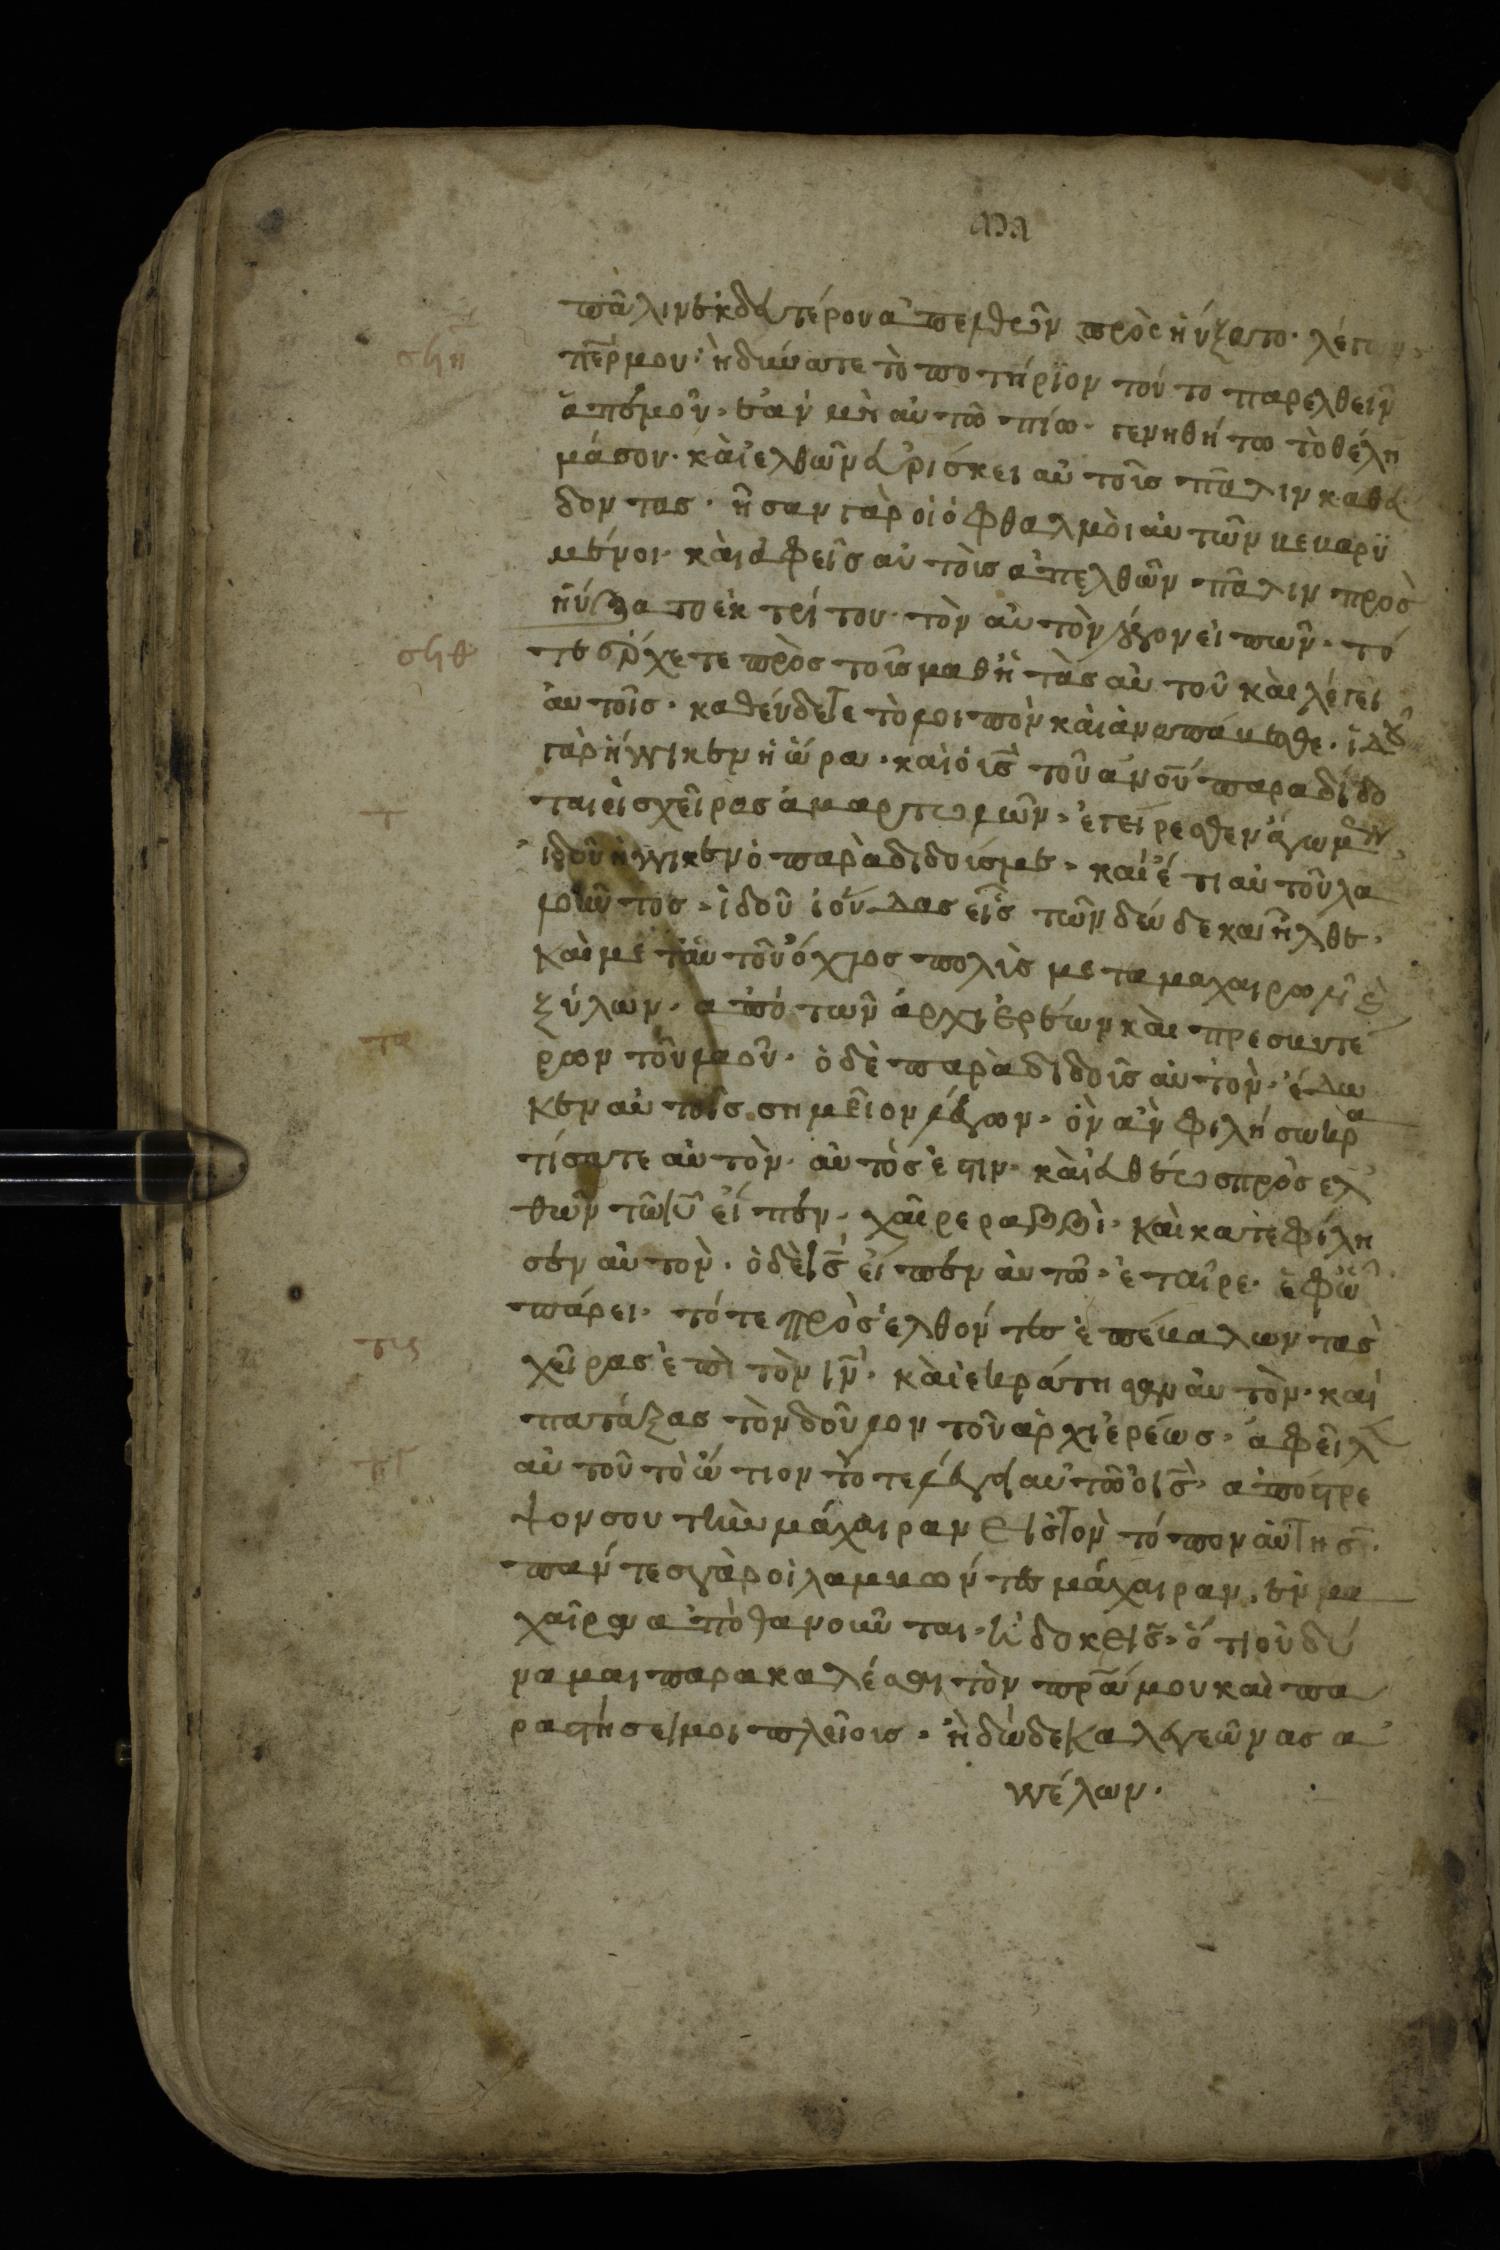 πᾶλιν ἐκδευτέρου ἀπελθῶν πρὸς ἠύξατο· λέγων·
πε̅ρ μου· ἡ δύνατε τὸ ποτήρϊον τούτο παρελθεῖν
ἀπέμοῦ· ἐὰν μὴ αὐτὸ πίω· γενηθήτω τὸ θέλη
μάσου· κὰι ἐλθῶν εὑρίσκει αὐτοῖσ πᾶλιν καθεύ
δοντασ· ἦσαν γὰρ οἱ ὀφθαλμὸι ἀυτῶν βεβαρϋ
μένοι· κὰι ἀφεῖσ αὐτὸισ ἀπελθῶν πᾶλιν πρὸσ
ἠύξατο ἐκ τρίτου· τὸν αὐτὸν λόγον εἰπῶν· τό
τε ἔρχετε πρὸσ τοῖσ μαθητὰσ αὐτοῦ κὰι λέγει
ἀυτοῖσ· καθέυδετε τὸ λοιπὸν κὰι ἀναπάυεσθε· ἰδοῦ
γὰρ ἤγγικεν ἡ ὥρα· καὶ ὁ ισ̅ τοῦ α̅νου̅ παραδίδο
ται εἰσ χεῖρασ ἁμαρτωλῶν· ἐγείρεσθεν ἄγωμεν·
ἰδοῦ ἤγγικεν ὁ παρὰδιδοίσ με· καὶ ἔτι αὐτοῦ λα
λοῦντοσ· ἰδοῦ ἰούδασ εἷσ τῶν δώδεκα ἦλθε·
κὰι μέτ ἀυτοῦ ὄχλοσ πολὶσ μετα μαχαιρων κὲ
ξύλων· ἀπὸ τῶν ἀρχιἐρέων κὰι πρεσβυτέ
ρων τοῦ λαοῦ· ὁ δὲ παρὰδιδοῖσ αὐτὸν· ἔδω
κεν αὐτοῖσ σημεῖον λέγων· ὁν ἀν φιλήσω κρα
τίσατε αὐτὸν· αὐτὸσ ἐστιν· κὰι ἐυθέωσ πρὸσελ
θῶν τῶ ιυ̅ εἶπέν· χαῖρε ραββὶ· κὰι κατεφίλη
σέν αὐτον· ὁ δὲ ισ̅ εἶπέν ἀυτῶ· ἐταῖρε· ἐφῶ
πάρει· τότε πρὸσἐλθόντεσ ἐπέβαλων τασ
χεῖρασ ἐπὶ τὸν ιν̅· κὰι ἐκράτησαν ἀυτὸν· καὶ
πατάξασ τὸν δοῦλον τοῦ ἀρχιἐρέωσ· ἀφεῖλε
αὐτοῦ τὸ ὤτιον τότε λέγει αὐτῶ ὁ ισ̅· ἀπόστρε
ψον σου τὴν μάχαιραν εἰσ τὸν τόπον ἀυτησ·
πάντεσ γὰρ οἱ λαμβωντεσ μάχαιραν· ἐν μα
χαῖρα ἀπὸθανοῦνται· ἢ δοκεισ· ὅτι οὐ δύ
ναμαι παρακαλέσαι τὸν πρ̅α μου κὰι πα
ραστήσει μοι πλεῖοισ· ἢ δώδεκα λεγεῶνασ ἀ
γγέλων·
σϟη
σϟθ
τ
τα